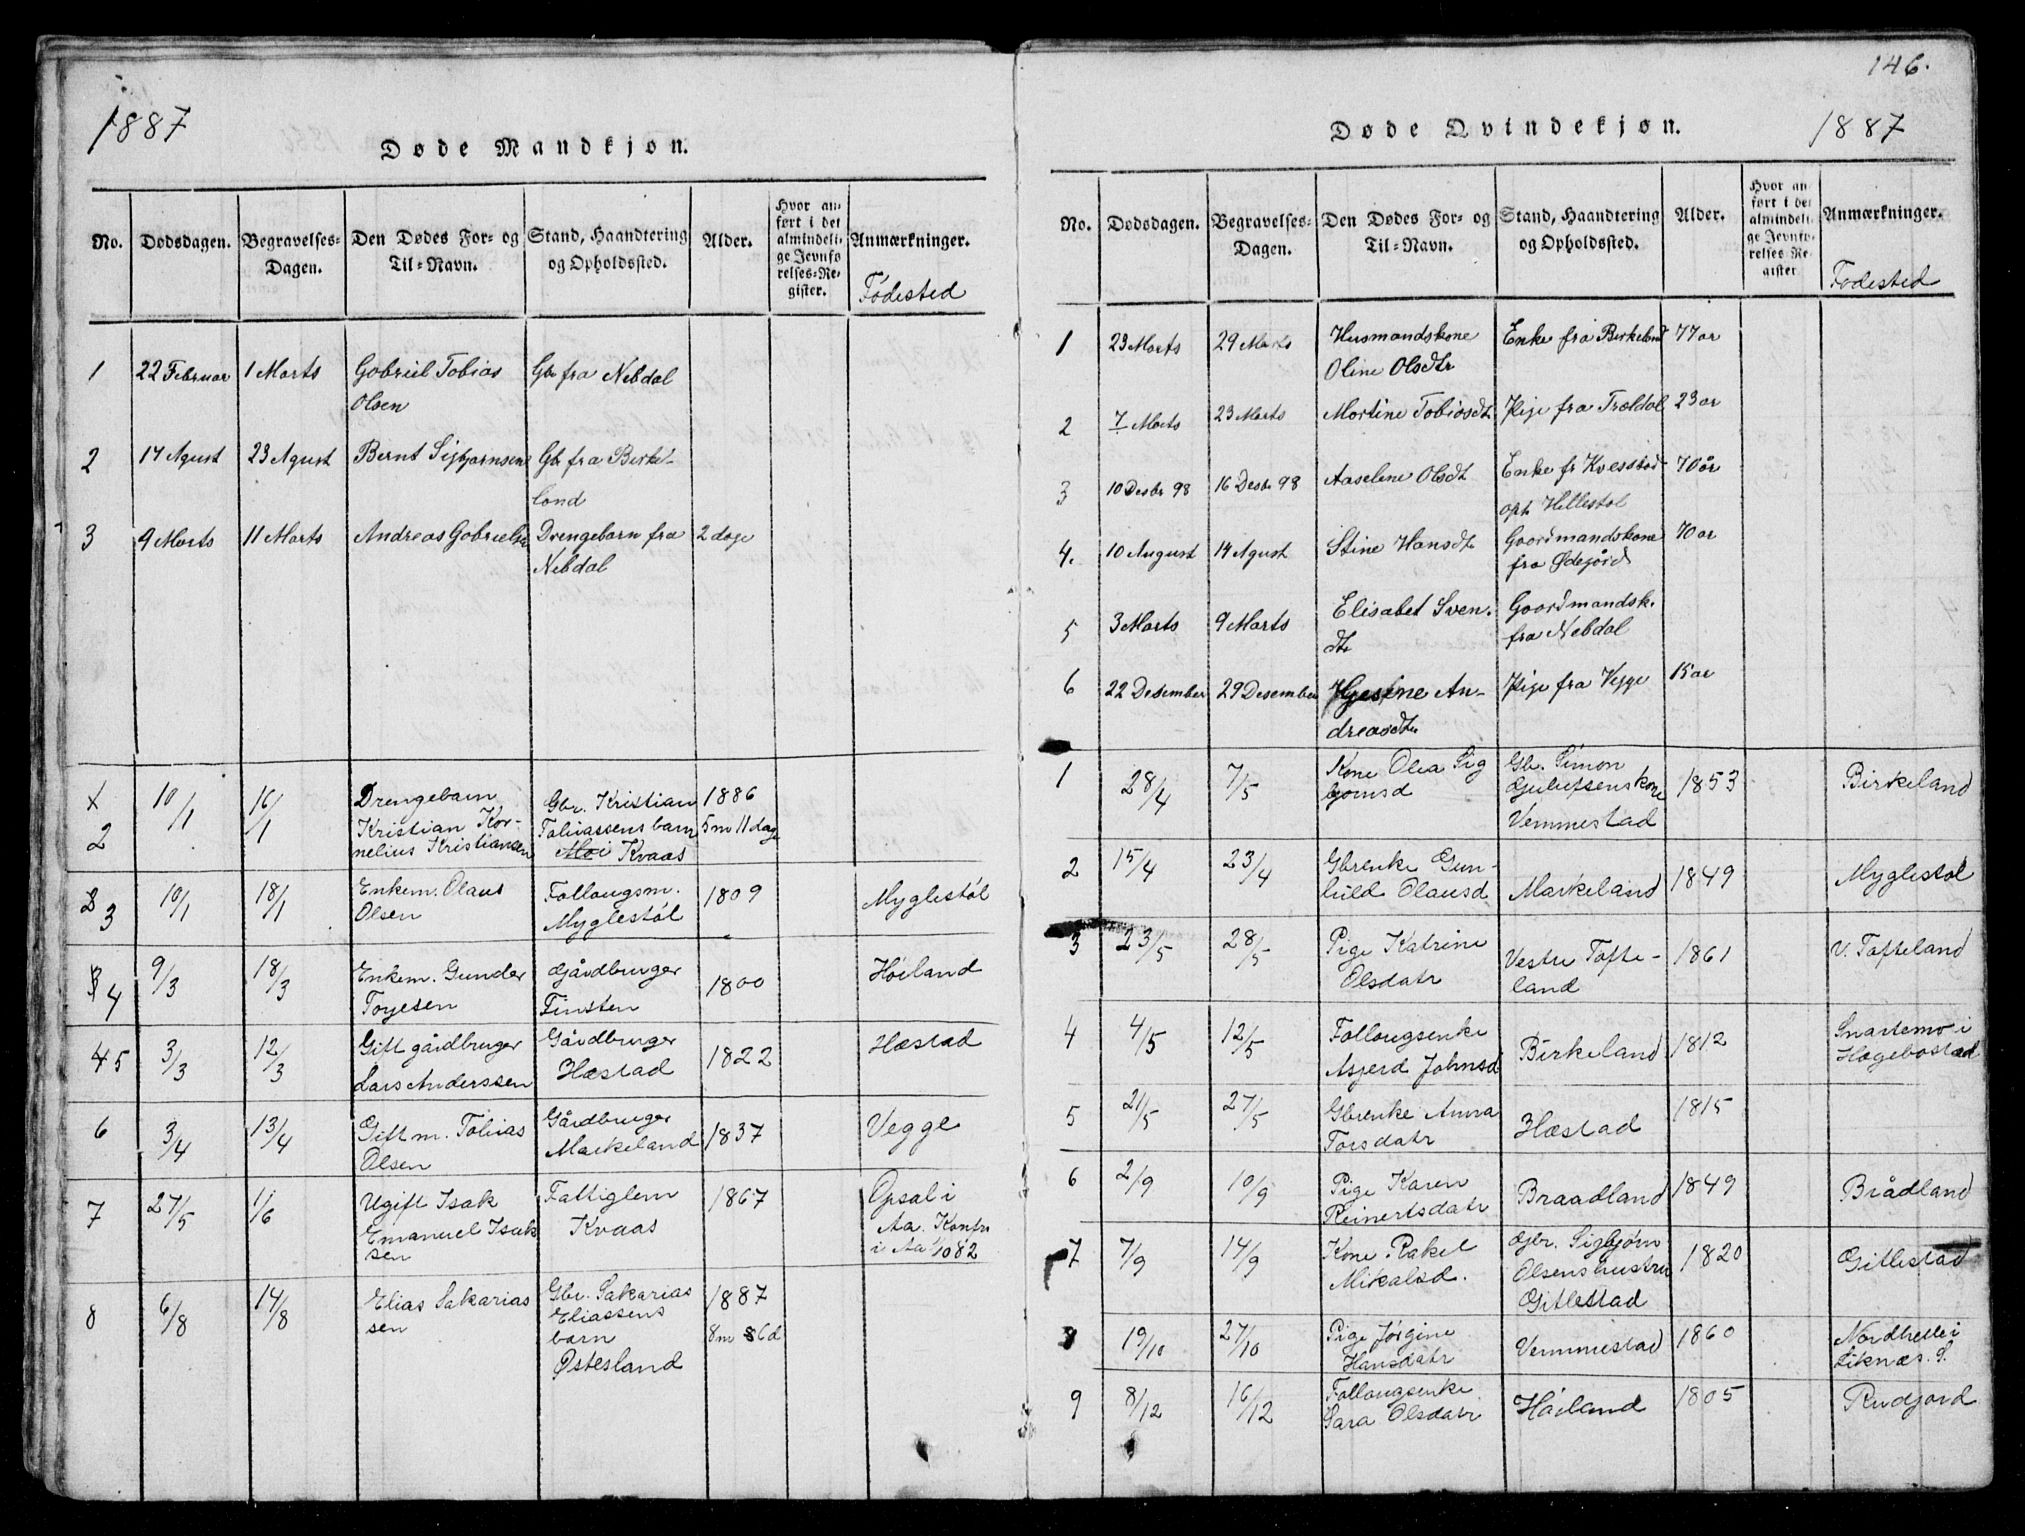 1887
Døde Mandkjøn.
No. Dødsdagen. Begravelses-Dagen. Den Dødes For- og Til-Navn. Stand, Haandtering og Opholdssted. Alder. Hvor anført i det almindelige Jevnførelses-Register. Anmærkninger.
Fødested
1 22 Februar 1 Marts Gabriel Tobias Gb fra Nebdal
Olsen
2 17 Agust 23 Agust Bernt Sigbjørnsen Gb fra Birke-
land
3 9 Marts 11 Marts Andreas Gabrielsen Drengebarn fra 2 dage
Nebdal
2 10/1 16/1 Drengebarn Gbr. Kristian 1886
Kristian Kor- Tobiassens barn 5 m 11 dage
nelius Kristiansen Moi Kvaas
3 10/1 18/1 Enkem. Olaus Follaugsm. 1809 Myglestøl
Olsen Myglestøl
4 9/3 18/3 Enkem. Gunder Gårdbruger 1800 Høiland
Toyesen Finsten
4 5 3/3 12/3 Gift gårdbruger Gårdbruger 1822 Hæstad
Lars Anderssen Hæstad
6 3/4 13/4 Gift m. Tobias Gårdbruger 1837 Vegge
Olsen Markeland
7 27/5 1/6 Ugift Isak Fattiglem 1867 Opsal i
Emanuel Isak Kvaas Aa. Kontr
sen i Aa 1082
8 6/8 14/8 Elias Sakarias Gbr. Sakarias 1887
sen Eliassens 8m 6d
barn
Østesland
146.
Døde Qvindekjøn.
1887
No. Dødsdagen. Begravelses-Dagen. Den Dødes For- og Til-Navn. Stand, Haandtering og Opholdssted. Alder. Hvor anført i det almindelige Jevnførelses-Register Anmærkninger.
Fødested
1 23 Marts 29 Marts Husmandskone Enke fra Birkeland 77 ar
Oline Olsdtr
2 7 Marts 23 Marts Martine Tobiasdt Pige fra Trældal 23 ar
3 10 Desbr 98 16 Desbr 98 Aaselene Olsdt Enke fr Kvesstad 70 år
oph Hellestøl
4. 10 August 14 Agust Stine Hansdt Gaardmandskone 70 ar
fra Ødegård
5 3 Marts 9 Marts Elisabet Sven- Gaardmandsk.
dtr fra Nebdal
6 22 Desember 29 Desember An- Pige fra Vegge 15 ar
dreasdtr
1 28/4 7/5 Kone Olea Sig Gbr. Simon 1853 Birkeland
bjørnsd kone
Vemmestad
2 15/4 23/4 Gbrenke Gun- Markeland 1849 Myglestøl
hild Olausd
3 23/5 28/5 Pige Katrine Vestre Tofte- 1861 V. Tofteland
Olsdatr land
4 4/5 12/5 Follaugsenke Birkeland 1812 Snartemo i
Asjerd Johnsd Hægebostad
5 21/5 27/5 Gbrenke Anna Hæstad 1815
Torsdatr
6 2/9 10/9 Pige Karen Braadland 1849 Brådland
Reinertsdatr
7 7/9 14/9 Kone Rakel Gbr. Sigbjørn 1820 Gitlestad
Mikalsd. Olsens hustru
Gitlestad
8 19/10 27/10 Pige Jørgine Vemmestad 1860 Nordhelle i
Hansdatr Liknæs. S.
9 8/12 16/12 Follaugsenke Høiland 1805 Rudjord
Sara Olsdatr